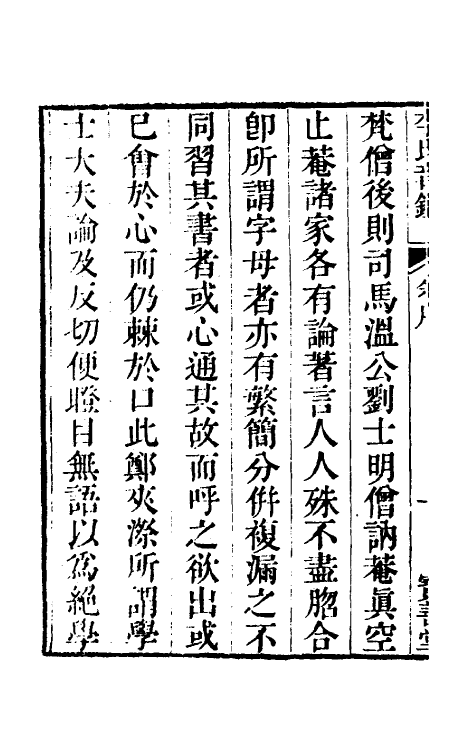 李氏音鑑
余序
一
寶善堂
梵僧後則司馬溫公劉士明僧訥菴眞空
止菴諸家各有論著言人人殊不盡脗合
卽所謂字母者亦有繁簡分倂複漏之不
同習其書者或心通其故而呼之欲出或
已會於心而仍棘於口此鄭夾漈所謂學
士大夫論及反切便瞪目無語以爲絕學